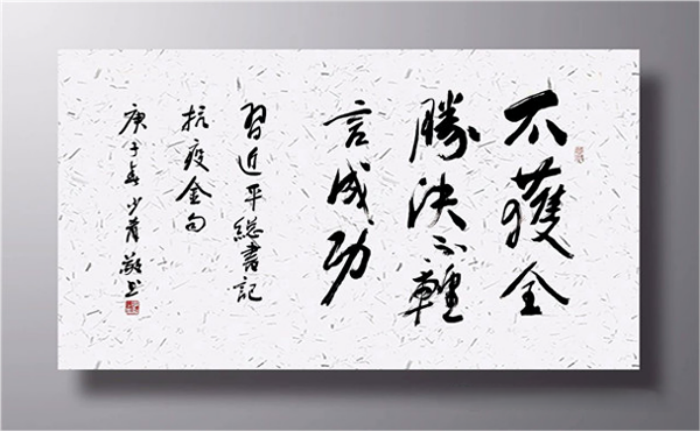 不獲全
勝决不輕
言成功
習近平總書記
抗疫金句
庚子春少敬书